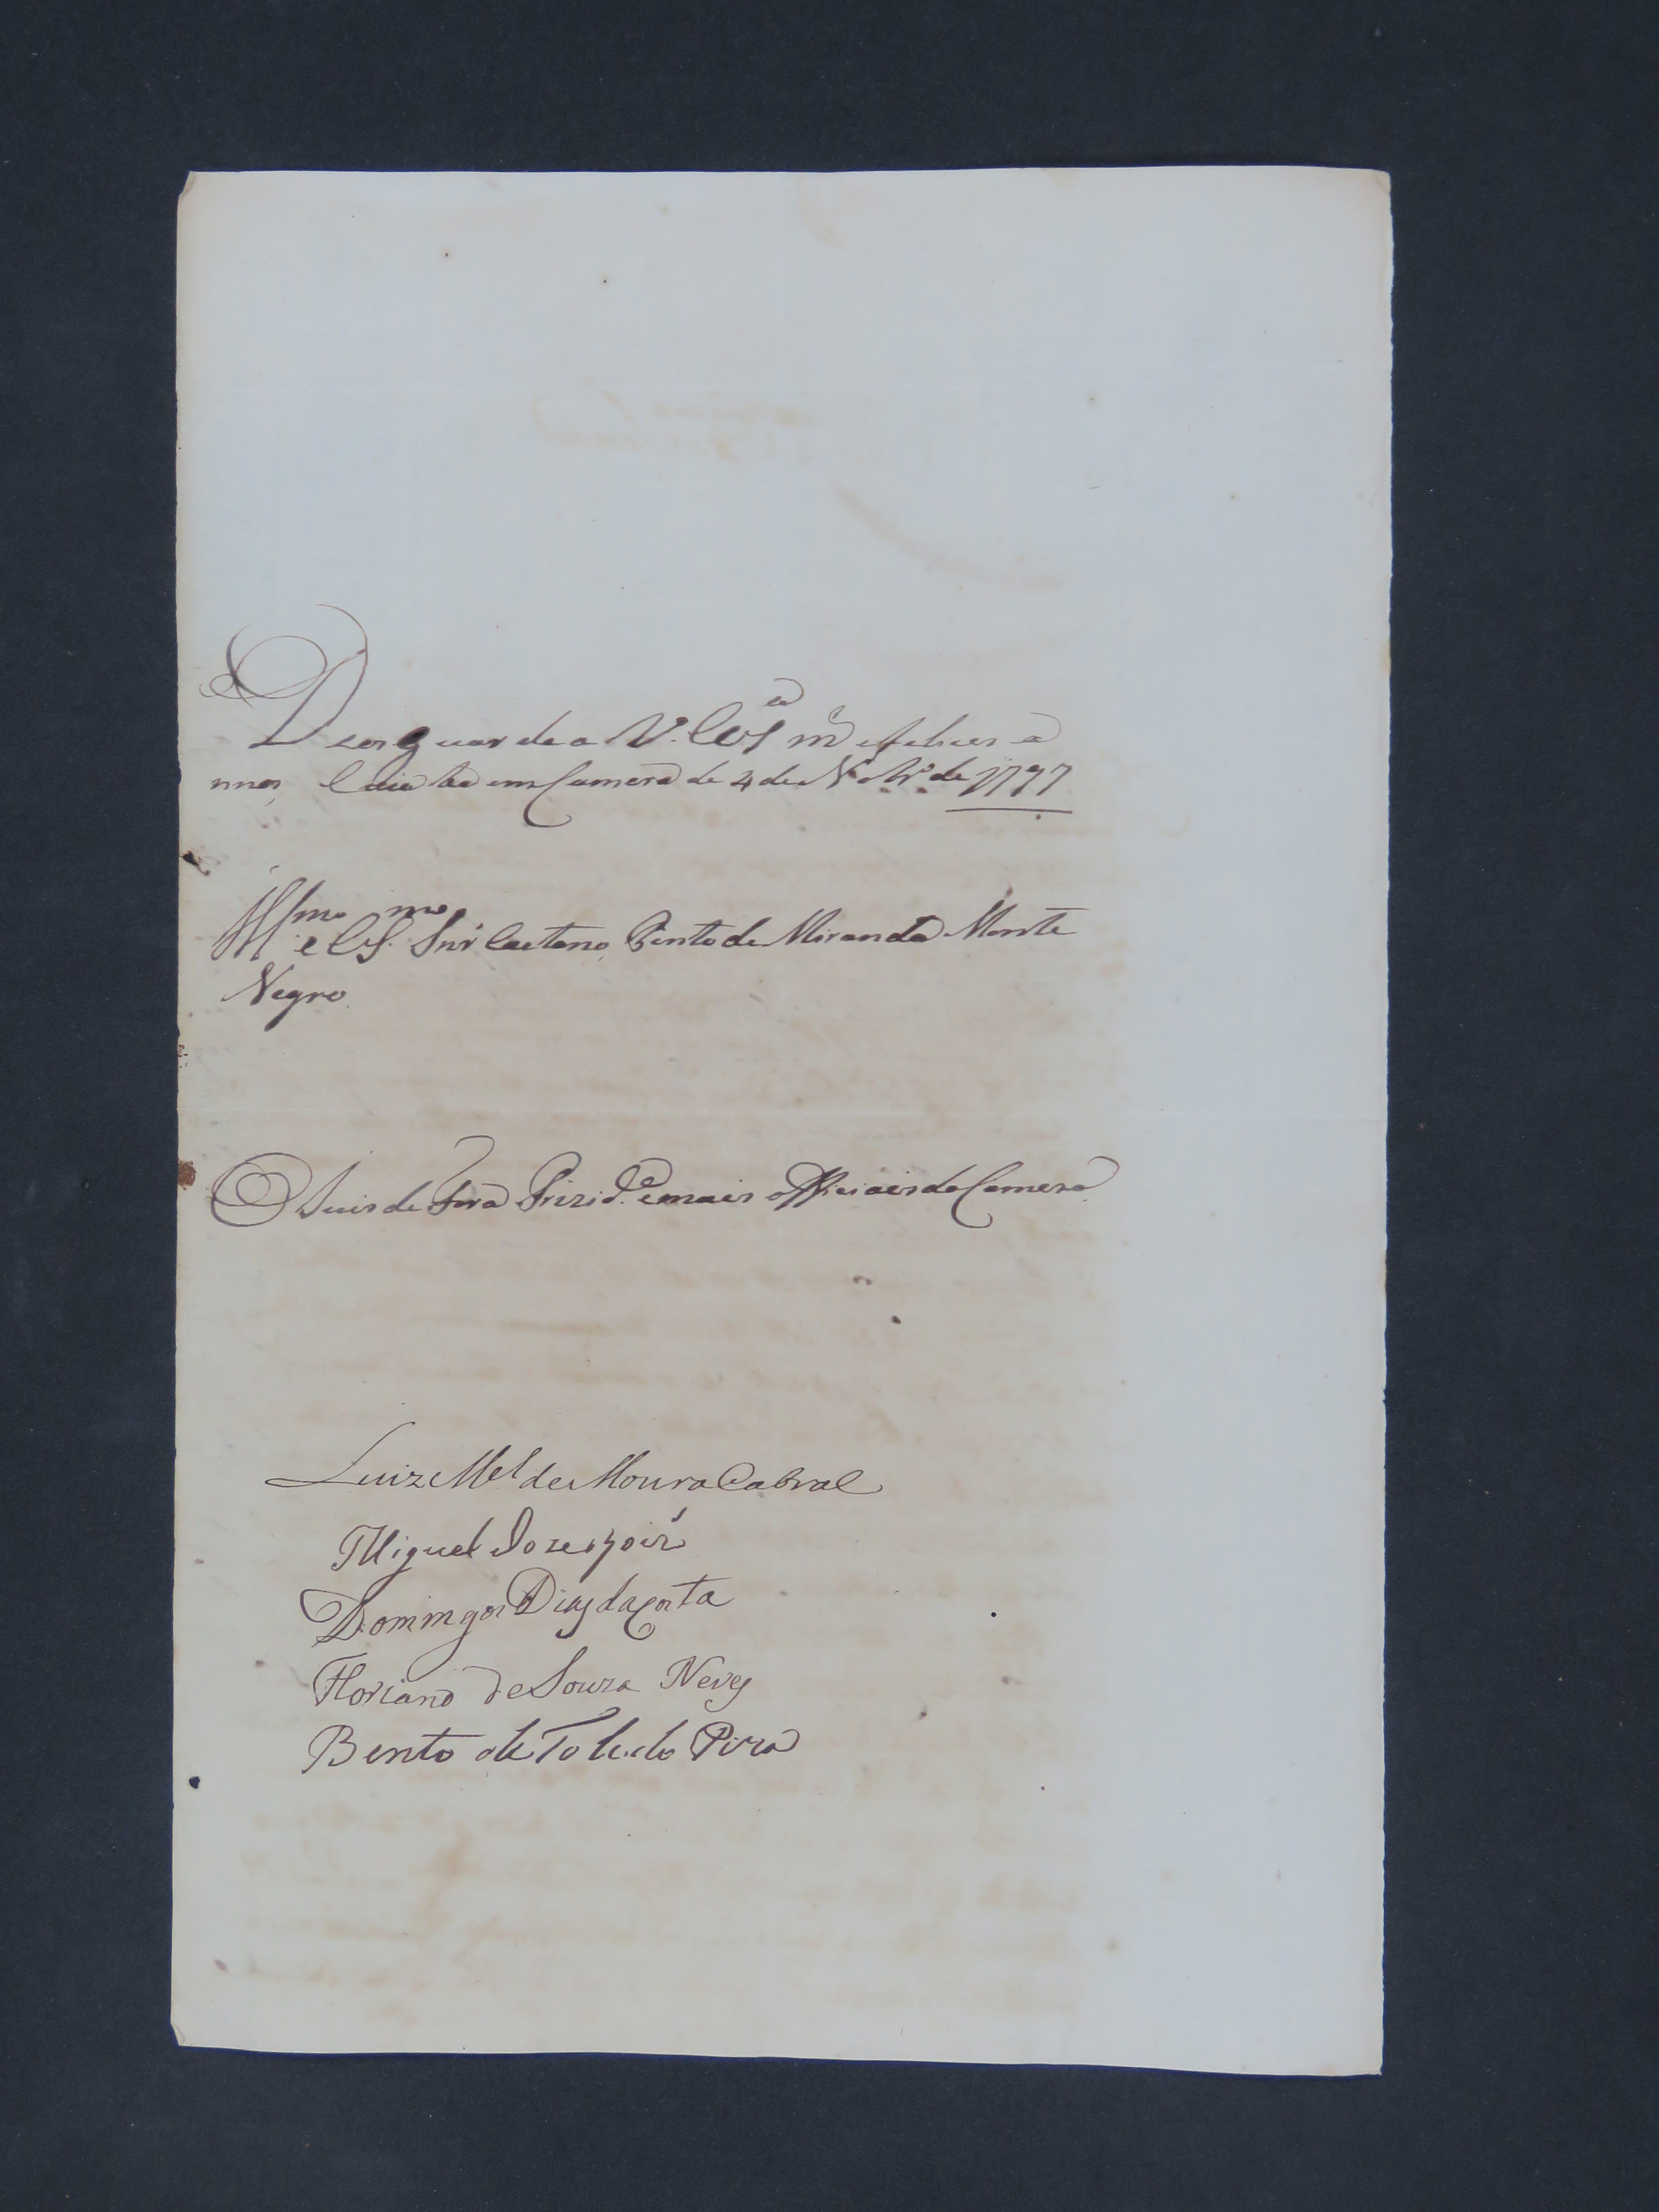 Deos guarde a V. Exª m.s e felices a
nnos, Cuiabá em Camera de 4 de Novbrº de 1797
Illmo e Exmo Snr Caetano Pinto de Miranda Monte
Negro
O Juis de Fora Prezid.e e mais officiaes da Camera
Luiz Mel de Moura Cabral
Miguel Joze
Domingos Dias da Costa
Floriano de Souza Neves
Bento de Toledo Piza